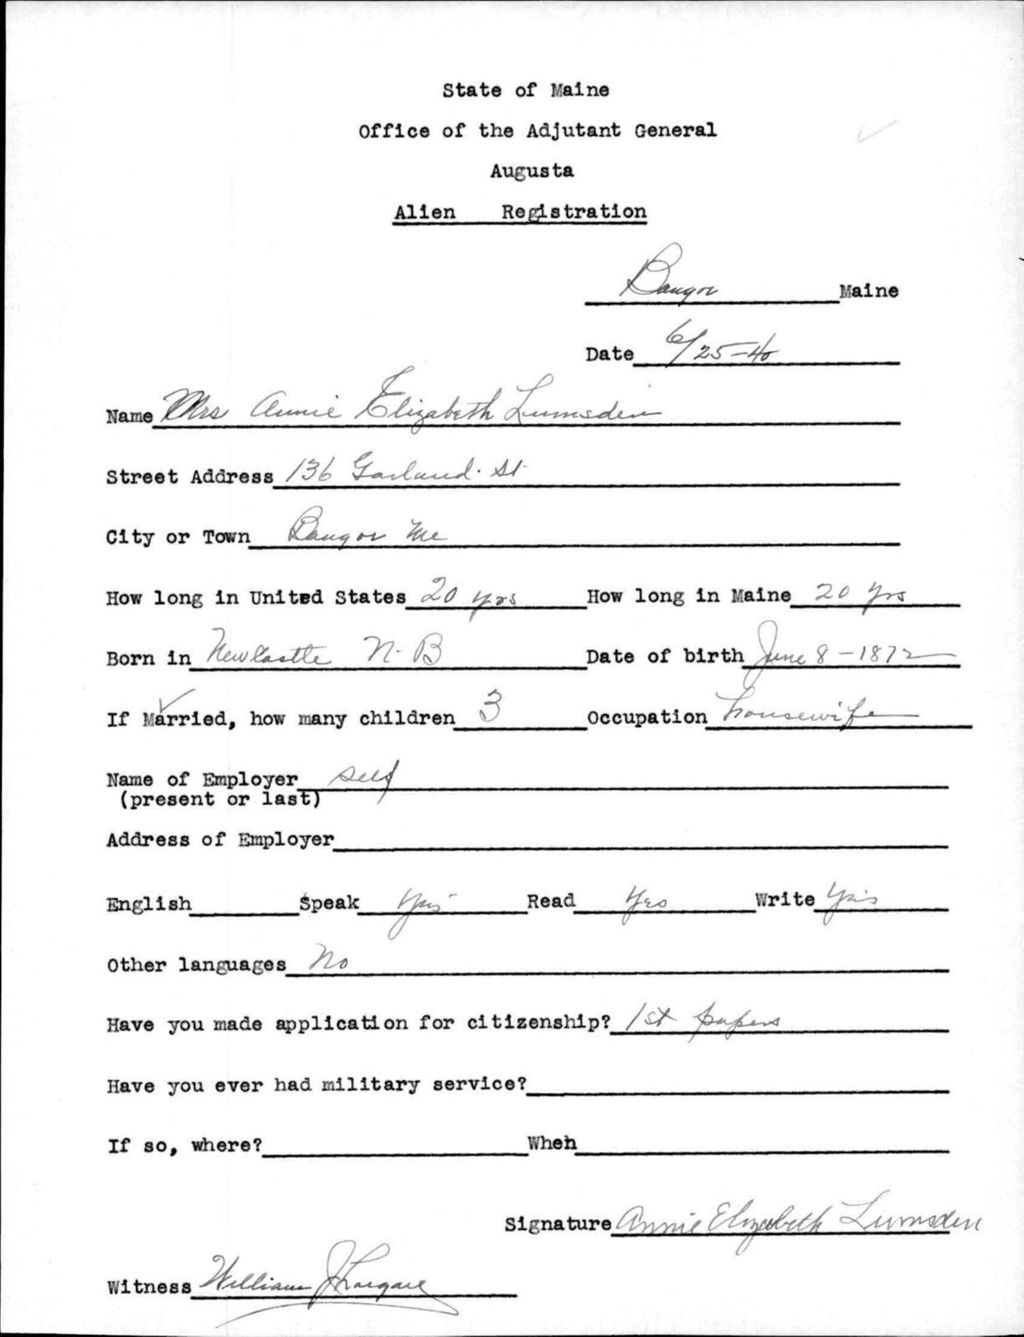 State of Maine
Office of the Adjutant General
Augusta
Alien Registration
Bangor Maine
Date 6/25-40
Name Mrs Annie Elizabeth Lumsden
Street Address 136 Garland. St.
City or Town Bangor Me
How long in United States 20 yrs How long in Maine 20 yrs
Born in Newcastle N. B Date of birth June 8 - 1872
If Married, how many children 3 Occupation housewife
Name of Employer self
(present or last)
Address of Employer
English Speak Yes Read Yes Write Yes
Other languages No
Have you made application for citizenship? 1st papers
Have you ever had military service?
If so, where? When
Signature Annie Elizabeth Lumsden
Witness William J